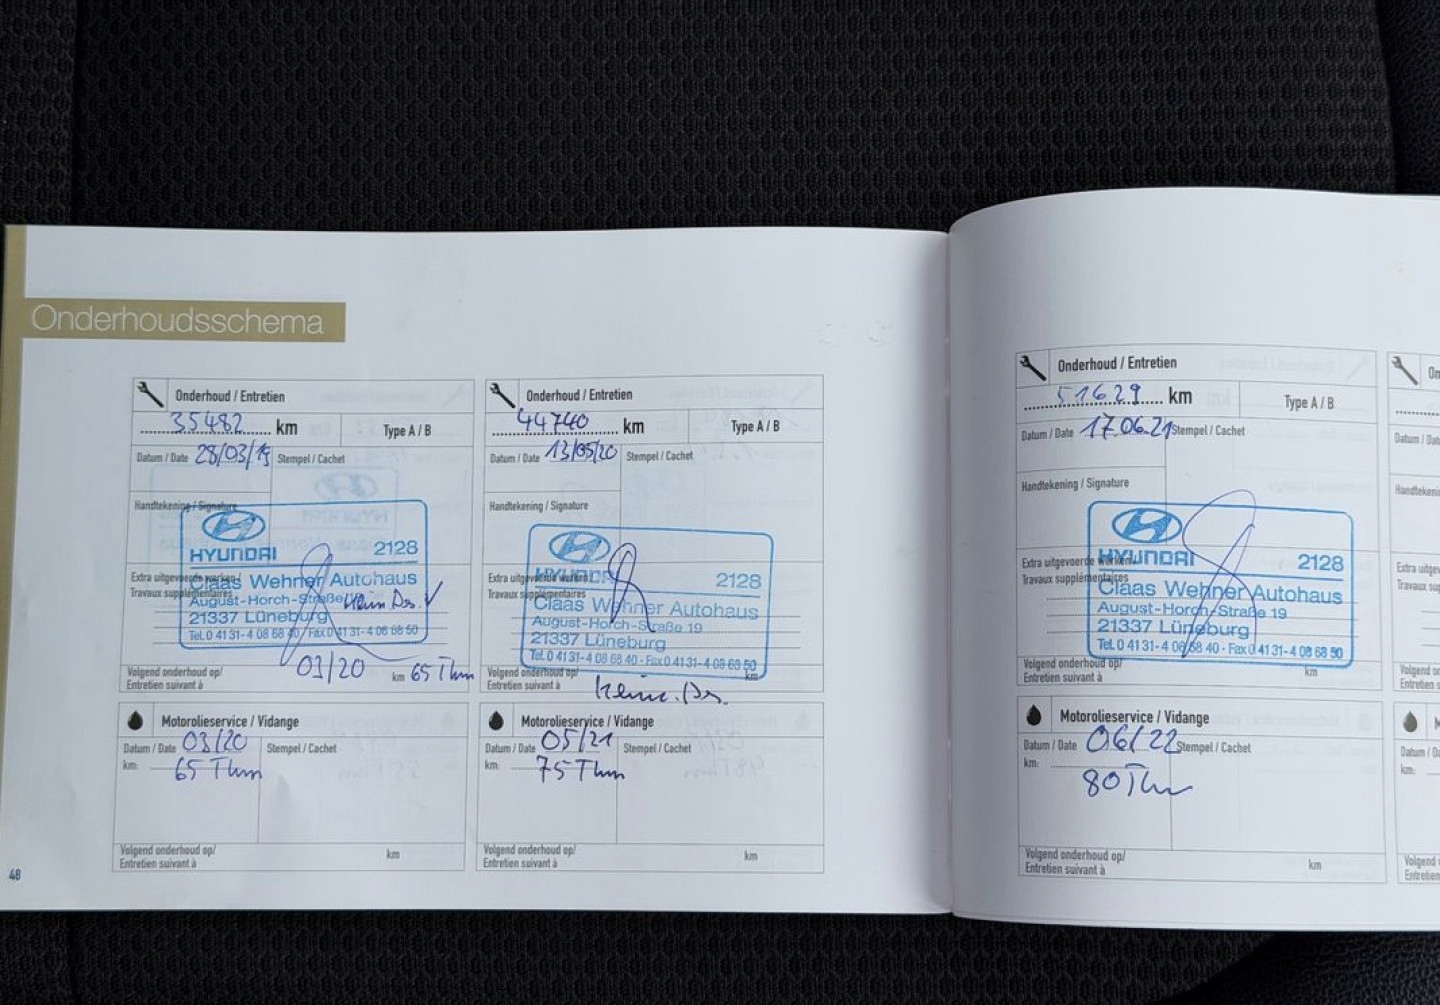 Onderhoudsschema
Onderhoud / Entretien
35482 km
Type A / B
Datum / Date 28/03/19 Stempel / Cachet
Handtekening / Signature
HYUNDAI 2128
Extra uitgevoerde werken /
Travaux supplémentaires
Claas Wehner Autohaus
August-Horch-Straße
21337 Lüneburg
Tel. 0 41 31-4 08 68 40 · Fax 0 41 31-4 08 68 50
Volgend onderhoud op/
Entretien suivant à
03/20 km 65 Tkm
Motorolieservice / Vidange
Datum / Date 03/20 Stempel / Cachet
km: 65 Tkm
Volgend onderhoud op/
Entretien suivant à
km
48
Onderhoud / Entretien
44740 km
Type A / B
Datum / Date 13/05/20 Stempel / Cachet
Handtekening / Signature
HYUNDAI 2128
Extra uitgevoerde werken
Travaux supplémentaires
Claas Wehner Autohaus
August-Horch-Straße 19
21337 Lüneburg
Tel. 0 41 31-4 08 68 40 · Fax 0 41 31-4 08 68 50
Volgend onderhoud op/
Entretien suivant à
km
Motorolieservice / Vidange
Datum / Date 05/21 Stempel / Cachet
km: 75 Tkm
Volgend onderhoud op/
Entretien suivant à
km
Onderhoud / Entretien
51629 km
Type A / B
Datum / Date 17.06.21 Stempel / Cachet
Handtekening / Signature
HYUNDAI 2128
Extra uitgevoerde werken
Travaux supplémentaires
Claas Wehner Autohaus
August-Horch-Straße 19
21337 Lüneburg
Tel. 0 41 31-4 08 68 40 · Fax 0 41 31-4 08 68 50
Volgend onderhoud op/
Entretien suivant à
km
Motorolieservice / Vidange
Datum / Date 06/22 Stempel / Cachet
km: 80 Tkm
Volgend onderhoud op/
Entretien suivant à
km